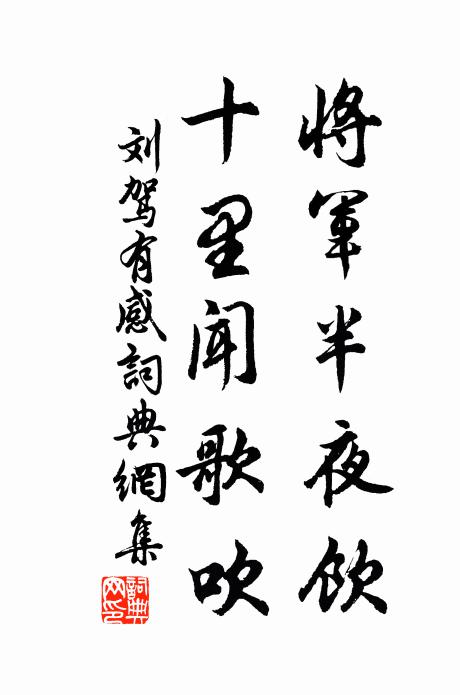 将軍半夜飲
十里闻歌吹
刘驾有感詞典網集
詞典
网印